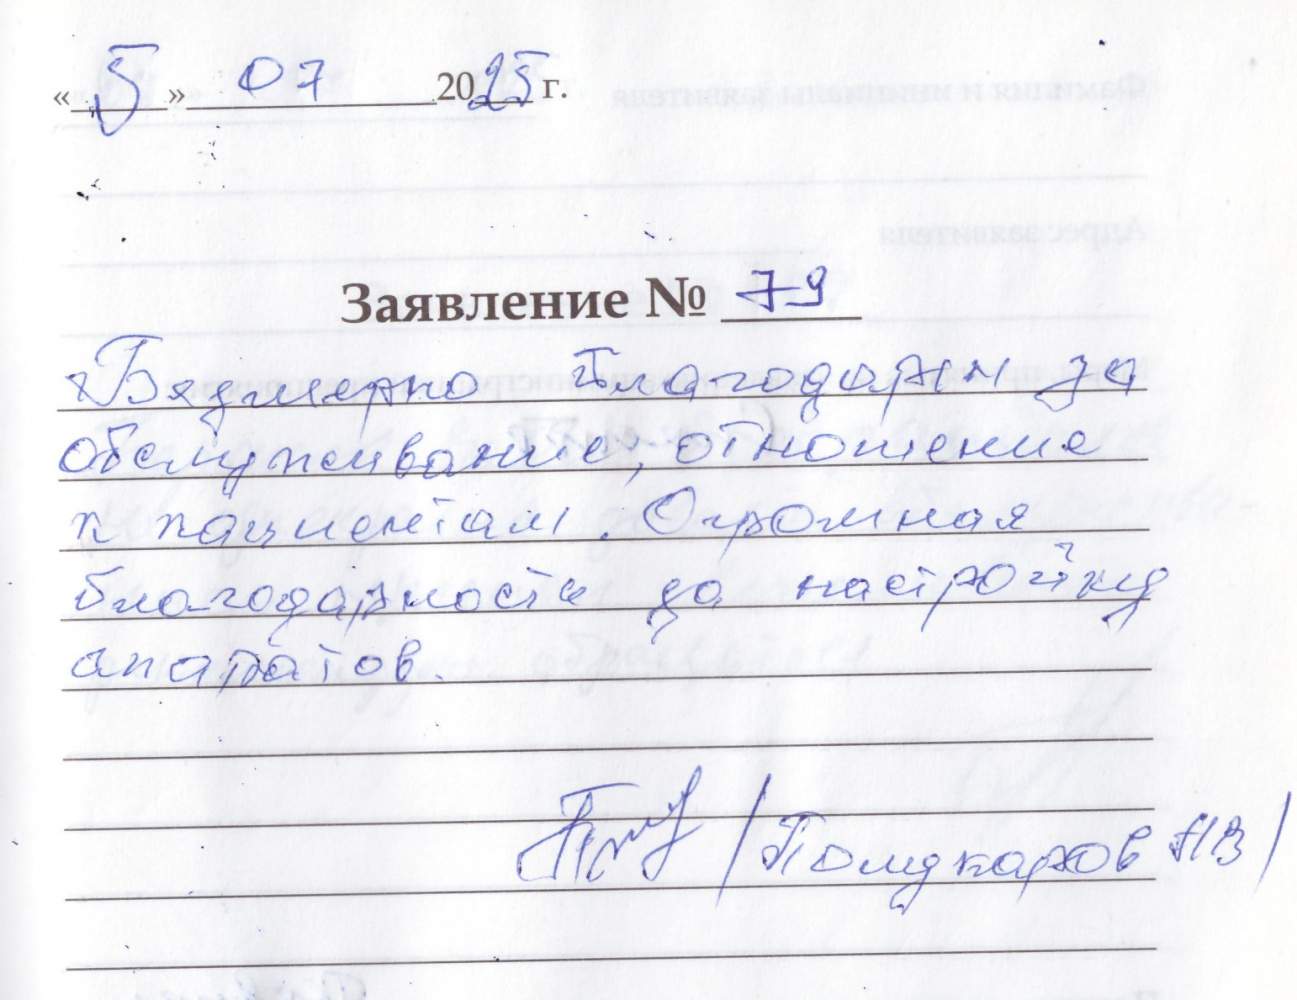 « 5 » 07 2025 г.
Заявление № 79
Безмерно благодарен за
обслуживание, отношение
к пациентам. Огромная
благодарность за настройку
апаратов.